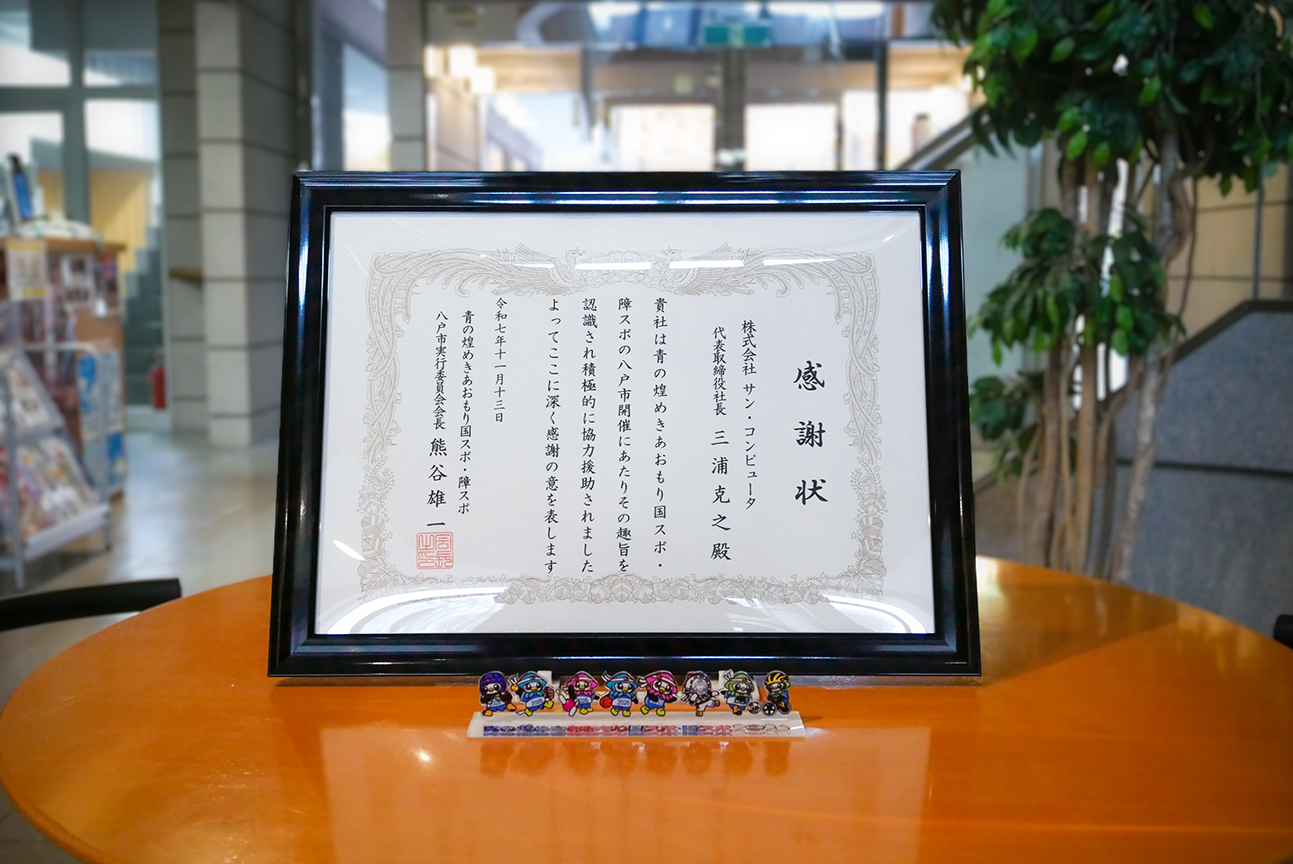 感謝状
株式会社 サン・コンピュータ
代表取締役社長 三浦克之殿
貴社は青の煌めきあおもり国スポ・
障スポの八戸市開催にあたりその趣旨を
認識され積極的に協力援助されました
よってここに深く感謝の意を表します
令和七年十一月十三日
青の煌めきあおもり国スポ・障スポ
八戸市実行委員会会長 熊谷雄一